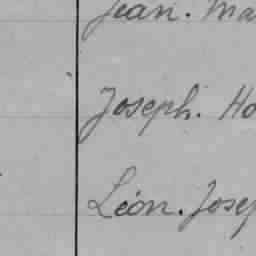 Jean. Ma
Joseph. Ho
Léon. Josep